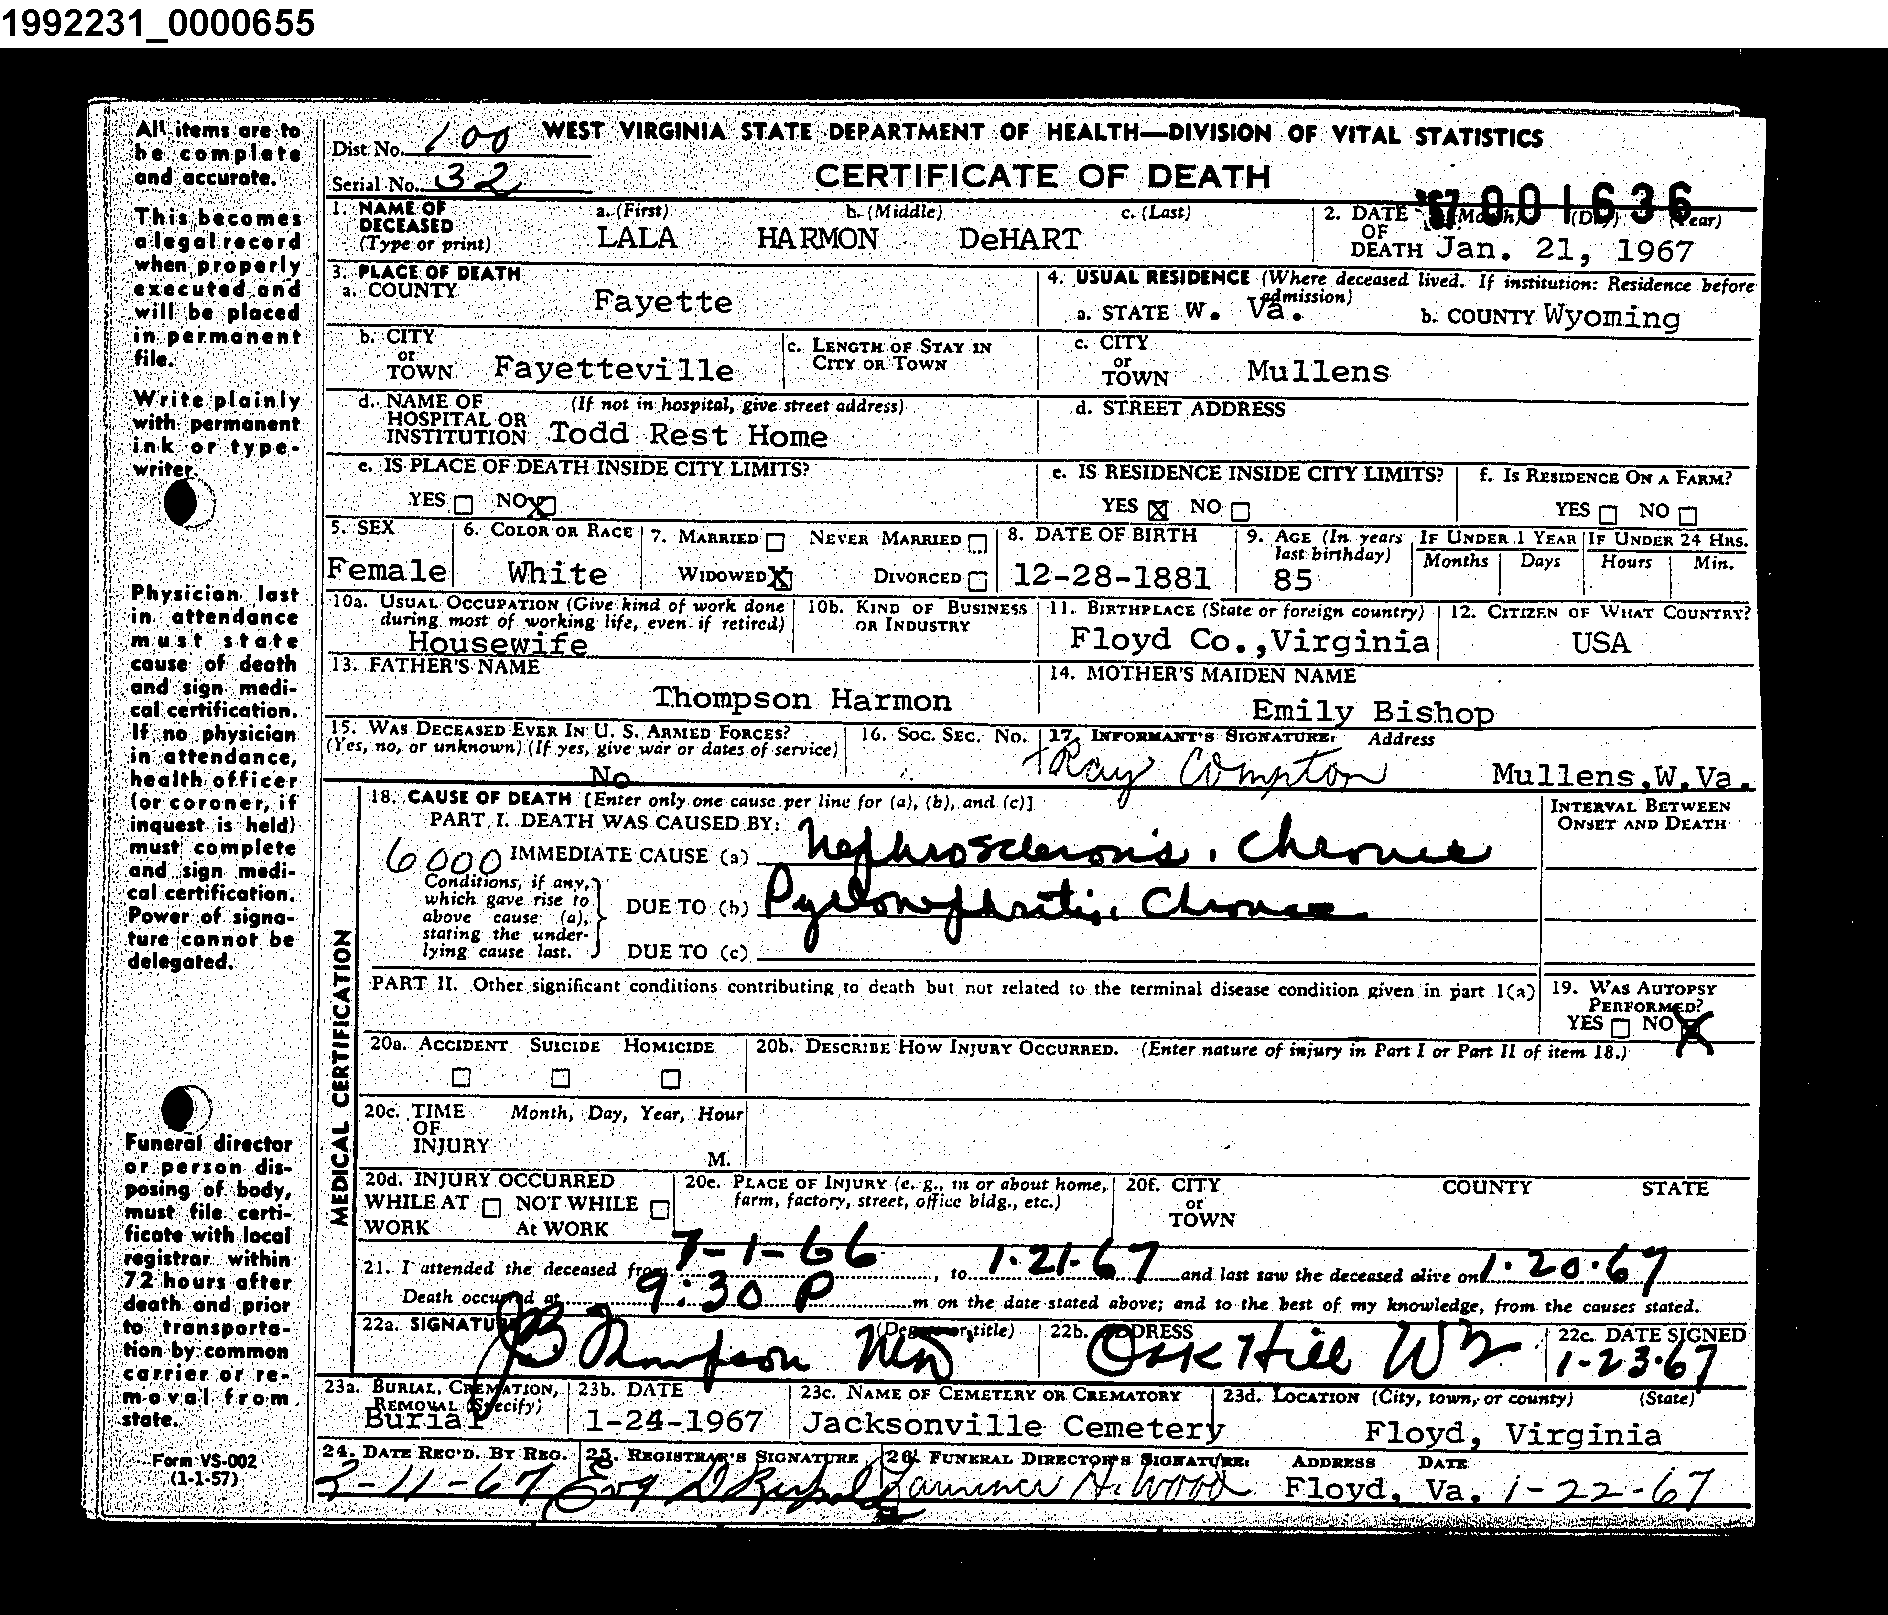 1992231_0000655
All items are to
be complete
and accurate.
This becomes
a legal record
when properly
executed and
will be placed
in permanent
file.
Write plainly
with permanent
ink or type-
writer.
Physician last
in attendance
must state
cause of death
and sign medi-
cal certification.
If no physician
in attendance,
health officer
(or coroner, if
inquest is held)
must complete
and sign medi-
cal certification.
Power of signa-
ture cannot be
delegated.
Funeral director
or person dis-
posing of body,
must file certi-
ficate with local
registrar within
72 hours after
death and prior
to transporta-
tion by common
carrier or re-
moval from
state.
Form VS-002
(1-1-57)
Dist. No. 100 WEST VIRGINIA STATE DEPARTMENT OF HEALTH—DIVISION OF VITAL STATISTICS
Serial No. 32 CERTIFICATE OF DEATH
'67 001636
1. NAME OF DECEASED (Type or print) a. (First) b. (Middle) c. (Last)
LALA HARMON DeHART
2. DATE OF DEATH (Month) (Day) (Year)
Jan. 21, 1967
3. PLACE OF DEATH
a. COUNTY Fayette
4. USUAL RESIDENCE (Where deceased lived. If institution: Residence before admission)
a. STATE W. Va. b. COUNTY Wyoming
b. CITY or TOWN Fayetteville
c. LENGTH OF STAY IN CITY OR TOWN
c. CITY or TOWN Mullens
d. NAME OF HOSPITAL OR INSTITUTION (If not in hospital, give street address)
Todd Rest Home
d. STREET ADDRESS
e. IS PLACE OF DEATH INSIDE CITY LIMITS?
YES NO X
e. IS RESIDENCE INSIDE CITY LIMITS?
YES X NO
f. IS RESIDENCE ON A FARM?
YES NO
5. SEX Female
6. COLOR OR RACE White
7. MARRIED NEVER MARRIED
WIDOWED X DIVORCED
8. DATE OF BIRTH 12-28-1881
9. AGE (In years last birthday) 85
IF UNDER 1 YEAR Months Days
IF UNDER 24 HRS. Hours Min.
10a. USUAL OCCUPATION (Give kind of work done during most of working life, even if retired)
Housewife
10b. KIND OF BUSINESS OR INDUSTRY
11. BIRTHPLACE (State or foreign country)
Floyd Co.,Virginia
12. CITIZEN OF WHAT COUNTRY?
USA
13. FATHER'S NAME
Thompson Harmon
14. MOTHER'S MAIDEN NAME
Emily Bishop
15. WAS DECEASED EVER IN U. S. ARMED FORCES?
(Yes, no, or unknown) (If yes, give war or dates of service)
No
16. SOC. SEC. No.
17. INFORMANT'S SIGNATURE: Address
Ray Compton Mullens,W.Va.
MEDICAL CERTIFICATION
18. CAUSE OF DEATH [Enter only one cause per line for (a), (b), and (c)]
INTERVAL BETWEEN ONSET AND DEATH
PART I. DEATH WAS CAUSED BY:
6000 IMMEDIATE CAUSE (a) Nephrosclerosis. Chronic
Conditions, if any, which gave rise to above cause (a), stating the under-lying cause last.
DUE TO (b) Pyelonephritis. Chronic
DUE TO (c)
PART II. Other significant conditions contributing to death but not related to the terminal disease condition given in part 1(a)
19. WAS AUTOPSY PERFORMED?
YES NO X
20a. ACCIDENT SUICIDE HOMICIDE
20b. DESCRIBE HOW INJURY OCCURRED. (Enter nature of injury in Part I or Part II of item 18.)
20c. TIME OF INJURY Month, Day, Year, Hour
M.
20d. INJURY OCCURRED
WHILE AT WORK NOT WHILE At WORK
20e. PLACE OF INJURY (e. g., in or about home, farm, factory, street, office bldg., etc.)
20f. CITY or TOWN COUNTY STATE
21. I attended the deceased from 7-1-66, to 1.21.67 and last saw the deceased alive on 1.20.67
Death occurred at 9:30 P m on the date stated above; and to the best of my knowledge, from the causes stated.
22a. SIGNATURE (Degree or title)
JB Thompson MD
22b. ADDRESS
Oak Hill W Va
22c. DATE SIGNED
1-23.67
23a. BURIAL, CREMATION, REMOVAL (Specify)
Burial
23b. DATE
1-24-1967
23c. NAME OF CEMETERY OR CREMATORY
Jacksonville Cemetery
23d. LOCATION (City, town, or county) (State)
Floyd, Virginia
24. DATE REC'D. BY REG.
3-11-67
25. REGISTRAR'S SIGNATURE
26. FUNERAL DIRECTOR'S SIGNATURE: ADDRESS DATE
H. Wood Floyd, Va. 1-22-67